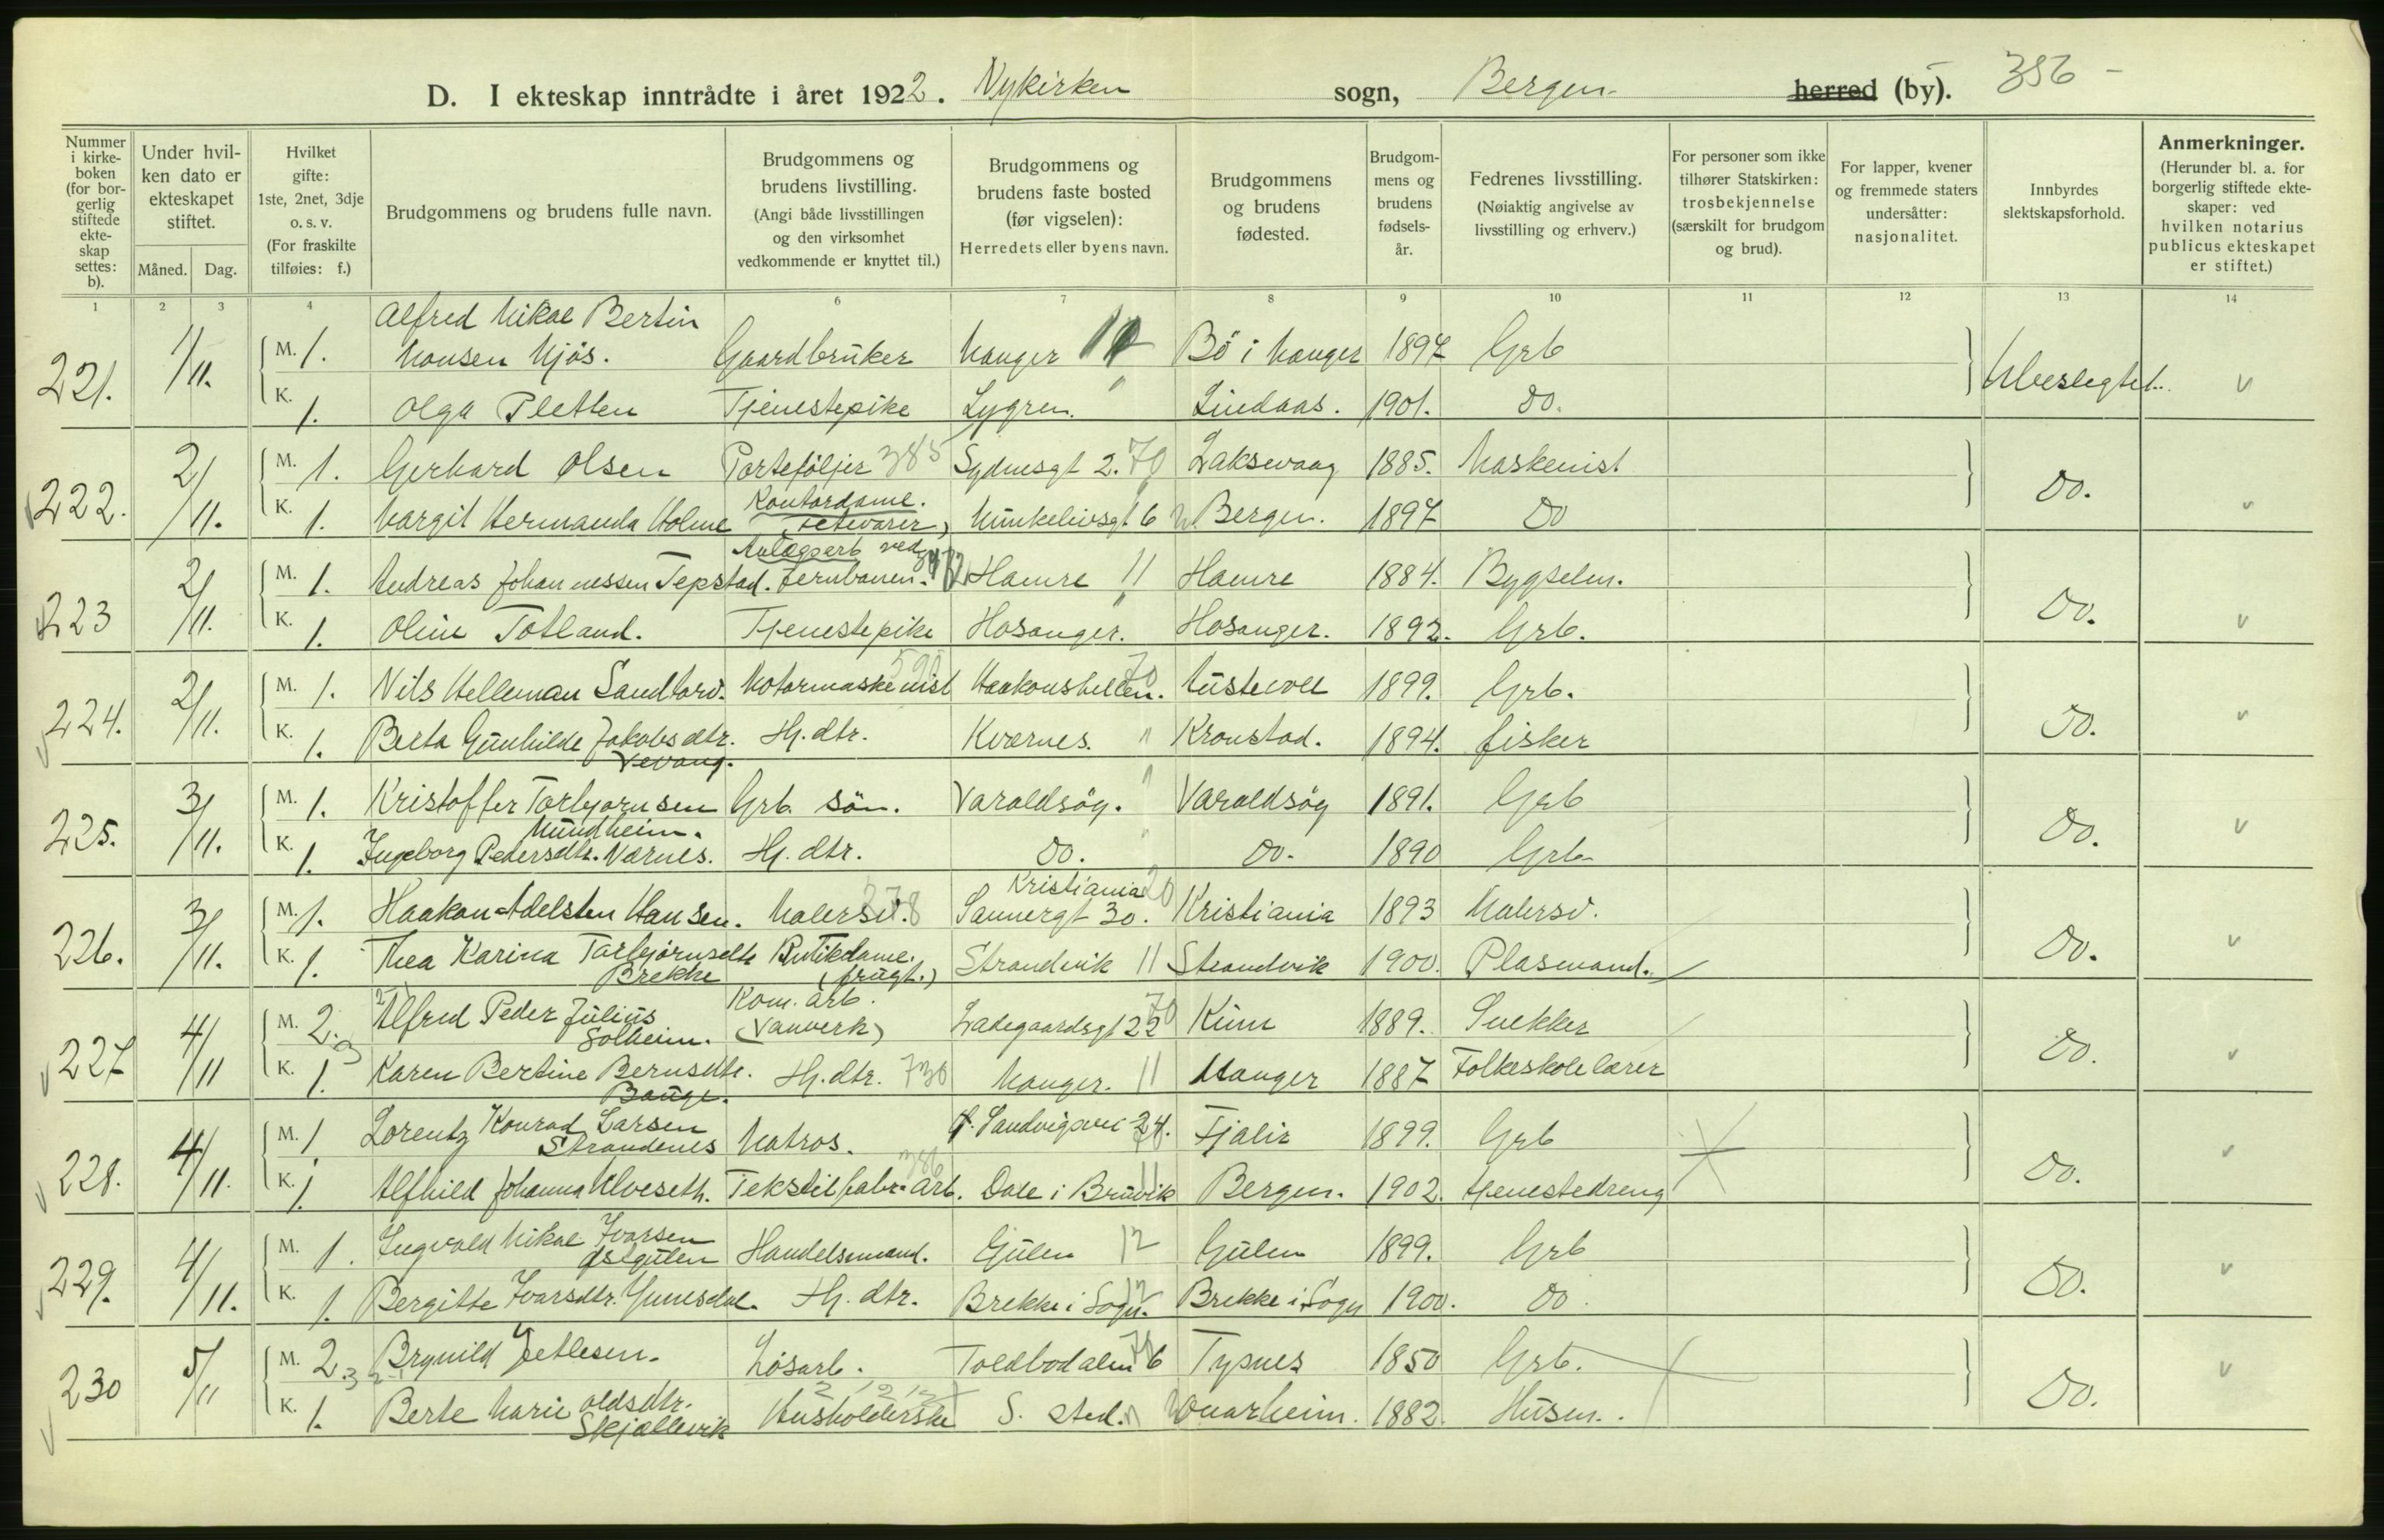 D. I ekteskap inntrådte i året 1922. Nykirken sogn, Bergen. herred (by). 356 -
Nummer i kirkeboken (for borgerlig stiftede ekteskap settes: b).
Under hvilken dato er ekteskapet stiftet.
Måned. Dag.
Hvilket gifte: 1ste, 2net, 3dje o. s. v. (For fraskilte tilføies: f.)
Brudgommens og brudens fulle navn.
Brudgommens og brudens livstilling. (Angi både livsstillingen og den virksomhet vedkommende er knyttet til.)
Brudgommens og brudens faste bosted (før vigselen): Herredets eller byens navn.
Brudgommens og brudens fødested.
Brudgommens og brudens fødselsår.
Fedrenes livsstilling. (Nøiaktig angivelse av livsstilling og erhverv.)
For personer som ikke tilhører Statskirken: trosbekjennelse (særskilt for brudgom og brud).
For lapper, kvener og fremmede staters undersåtter: nasjonalitet.
Innbyrdes slektskapsforhold.
Anmerkninger. (Herunder bl. a. for borgerlig stiftede ekteskaper: ved hvilken notarius publicus ekteskapet er stiftet.)
1 2 3 4 6 7 8 9 10 11 12 13 14
Alfred Mikal Bertin
221. 1/11. M. 1. Monsen Mjøs. Gaardbruker Manger Bö i Manger 1897 Grb Ubeslegtet.
K. 1. Olga Pletten Tjenestepike Lygren. Lindaas. 1901. Do.
222. 2/11. M. 1. Gerhard Olsen Porteføljer 385 Sydnesgt 2. 70 Laksevaag 1885. Maskenist Do.
Kontordame.
K. 1. Margit Hermanda Holme (fetevarer) Munkelivsgt 6 Bergen. 1897 Do
Anlægsarb ved
223 2/11. M. 1. Andreas Johannessen Tepstad. Jernbanen. Hamre 11 Hamre 1884. Bygselm. Do.
K. 1. Oline Totland. Tjenestepike Hosanger. Hosanger. 1892. Grb.
224. 2/11. M. 1. Nils Helleman Sandtorv. Motormaskenist Haakonshellen. Austevoll 1899. Grb. Do.
K. 1. Berta Gunhilde Jakobsdtr. Hj. dtr. Kværnes. Kronstad. 1894. fisker
Vevang.
225. 3/11. M. 1. Kristoffer Torbjørnsen Grb. søn. Varaldsøy. Varaldsøy 1891. Grb Do.
Mundheim.
K. 1. Ingeborg Pedersdtr. Værnes. Hj. dtr. Do. Do. 1890 Grb
Kristiania 20
226. 3/11. M. 1. Haakon Adelsten Hansen. Malersv. 278 Sannergt 30. Kristiania 1893 Malersv. Do.
K. 1. Thea Karina Torbjørnsdtr Butikdame. Strandvik 11 Strandvik 1900. Plasmand.
Brekke (frugt.)
Kom. arb.
227 4/11 M. 2. Alfred Peder Julius (Vanverk) Ladegaardsgt 22 Kinn 1889. Snekker Do.
Solheim.
K. 1. Karen Bertine Bernsdtr. Hj. dtr. 730 Manger. 11 Manger 1887 Folkeskolelærer
Bauge.
228. 4/11. M. 1 Lorentz Konrad Larsen Matros. Sandvigsvei 24. Fjaler 1899. Grb Do.
Strandenes
K. 1. Alfhild Johanna Ulveseth. Tekstilfabr. arb. Dale i Bruvik Bergen. 1902. tjenestedreng
229. 4/11. M. 1. Ingvald Mikal Ivarsen Handelsmand. Gulen 12 Gulen 1899. Grb Do.
Østgulen
K. 1. Bergitte Ivarsdtr. Ynnesdal. Hj. dtr. Brekke i Sogn. Brekke i Sogn 1900. Do.
230 5/11 M. 2. Brynild Jetlesen. Løsarb. Toldbodalm 6 Tysnes 1850 Grb. Do.
K. 1. Berte Marie Oldsdtr. Husholderske S. sted. Kvarheim. 1882. Husm.
Skjællevik